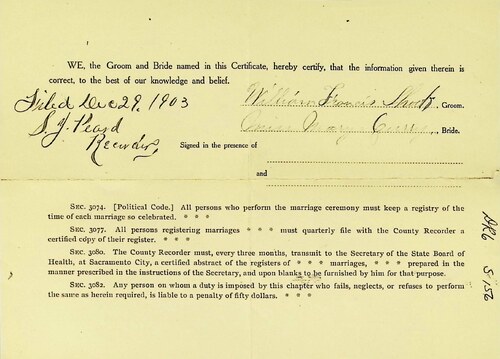 WE, the Groom and Bride named in this Certificate, hereby certify, that the information given therein is
correct, to the best of our knowledge and belief.
Filed Dec 29, 1903
William Francis , Groom.
Mary , Bride.
S. J. Peard
Recorder,
Signed in the presence of
and
SEC. 3074. [Political Code.] All persons who perform the marriage ceremony must keep a registry of the
time of each marriage so celebrated. * * *
SEC. 3077. All persons registering marriages * * * must quarterly file with the County Recorder a
certified copy of their register. * * *
SEC. 3080. The County Recorder must, every three months, transmit to the Secretary of the State Board of
Health, at Sacramento City, a certified abstract of the registers of * * * marriages, * * * prepared in the
manner prescribed in the instructions of the Secretary, and upon blanks to be furnished by him for that purpose.
SEC. 3082. Any person on whom a duty is imposed by this chapter who fails, neglects, or refuses to perform
the same as herein required, is liable to a penalty of fifty dollars. * * *